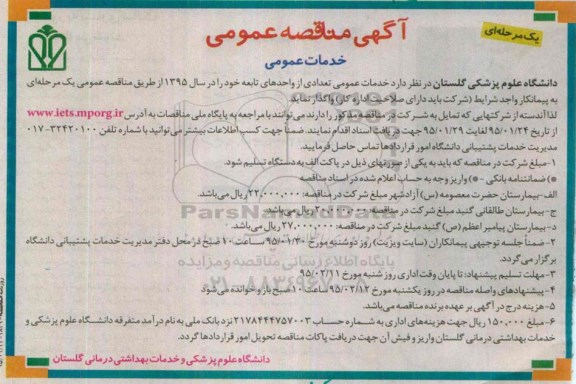 آگهی مناقصه عمومی
یک مرحله‌ای
خدمات عمومی
دانشگاه علوم پزشکی گلستان در نظر دارد خدمات عمومی تعدادی از واحدهای تابعه خود را در سال ۱۳۹۵ از طریق مناقصه عمومی یک مرحله‌ای
به پیمانکار واجد شرایط (شرکت باید دارای صلاحیت اداره کار) واگذار نماید.
لذا آندسته از شرکتهایی که تمایل به شرکت در مناقصه مذکور را دارند می‌توانند با مراجعه به پایگاه ملی مناقصات به آدرس www.iets.mporg.ir
از تاریخ ۹۵/۰۱/۲۴ لغایت ۹۵/۰۱/۲۹ جهت دریافت اسناد اقدام نمایند. ضمناً جهت کسب اطلاعات بیشتر می‌توانید با شماره تلفن ۳۲۴۳۰۱۰۰-۰۱۷
مدیریت خدمات پشتیبانی دانشگاه امور قراردادها تماس حاصل فرمایید.
۱-مبلغ شرکت در مناقصه که باید به یکی از صورتهای ذیل در پاکت الف به دستگاه تسلیم شود.
* ضمانتنامه بانکی -* واریز وجه به حساب اعلام شده در اسناد مناقصه
الف-بیمارستان حضرت معصومه (س) آزادشهر مبلغ شرکت در مناقصه: ۲۲,۰۰۰,۰۰۰ ریال می‌باشد.
ج-بیمارستان طالقانی گنبد مبلغ شرکت در مناقصه: ریال می‌باشد.
د-بیمارستان پیامبر اعظم (ص) گنبد مبلغ شرکت در مناقصه: ۲۷,۰۰۰,۰۰۰ ریال می‌باشد.
۲- ضمناً جلسه توجیهی پیمانکاران (سایت ویزیت) روز دوشنبه مورخ ۹۵/۰۱/۳۰ ساعت ۱۰ صبح در محل دفتر مدیریت خدمات پشتیبانی دانشگاه
برگزار می‌گردد.
۳-مهلت تسلیم پیشنهاد: تا پایان وقت اداری روز شنبه مورخ ۹۵/۰۲/۱۱
۴-پیشنهادهای واصله مناقصه در روز یکشنبه مورخ ۹۵/۰۲/۱۲ ساعت ۱۰ صبح باز و خوانده می‌شود
۵-هزینه درج در آگهی بر عهده برنده مناقصه می‌باشد.
۶-مبلغ ۱۵۰,۰۰۰ ریال جهت هزینه‌های اداری به شماره حساب ۲۱۷۸۴۴۴۷۵۷۰۰۳ نزد بانک ملی به نام درآمد متفرقه دانشگاه علوم پزشکی و
خدمات بهداشتی درمانی گلستان واریز و فیش آن جهت دریافت پاکات مناقصه تحویل امور قراردادها گردد.
دانشگاه علوم پزشکی و خدمات بهداشتی درمانی گلستان
ParsNamadData
پایگاه اطلاع رسانی مناقصه و مزایده